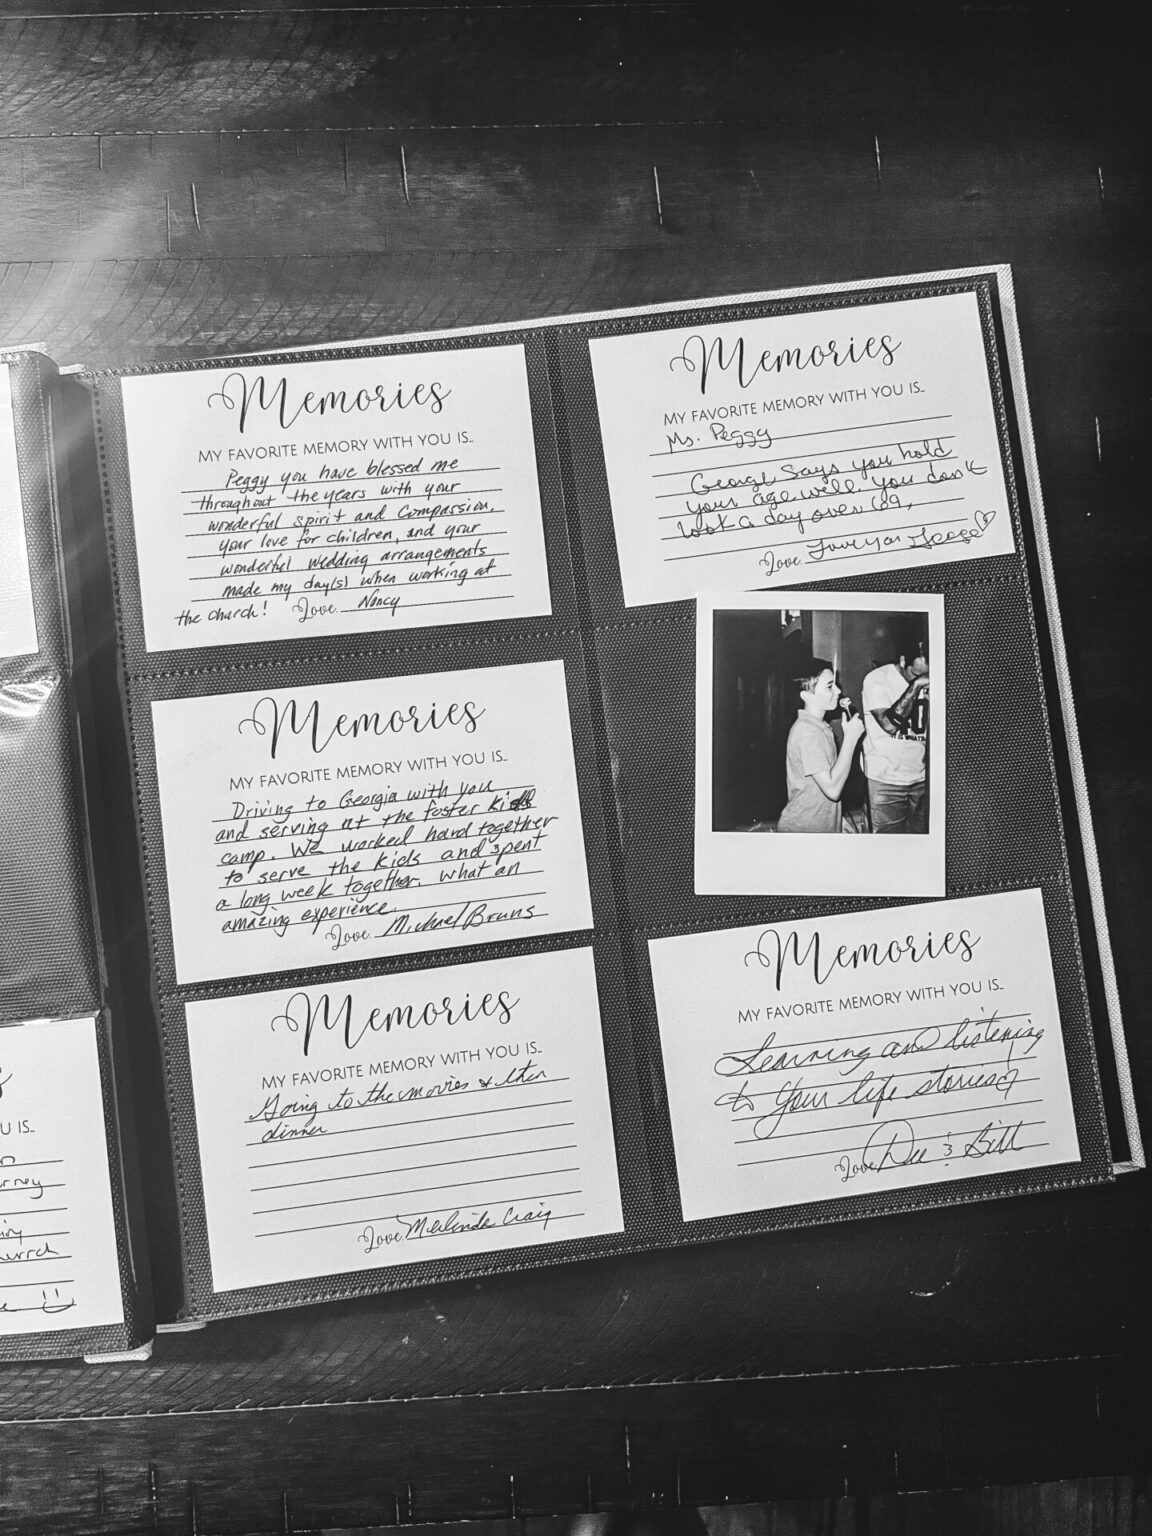 Memories
MY FAVORITE MEMORY WITH YOU IS...
Peggy you have blessed me
throughout the years with your
wonderful spirit and compassion,
your love for children, and your
wonderful wedding arrangements
made my day(s) when working at
the church! Love, Nancy
Memories
MY FAVORITE MEMORY WITH YOU IS...
Driving to Georgia with you
and serving at the foster kids
camp. We worked hard together
to serve the kids and spent
a long week together. What an
amazing experience.
Love, Michael Bruns
Memories
MY FAVORITE MEMORY WITH YOU IS...
Going to the movies &
dinner
Love, Merlinda Craig
Memories
MY FAVORITE MEMORY WITH YOU IS...
Ms. Peggy
George says you hold
your age well, you don't
look a day over 69,
Love, Love you George
Memories
MY FAVORITE MEMORY WITH YOU IS...
Learning and listening
to your life stories
Love, Dee & Bill
U IS...